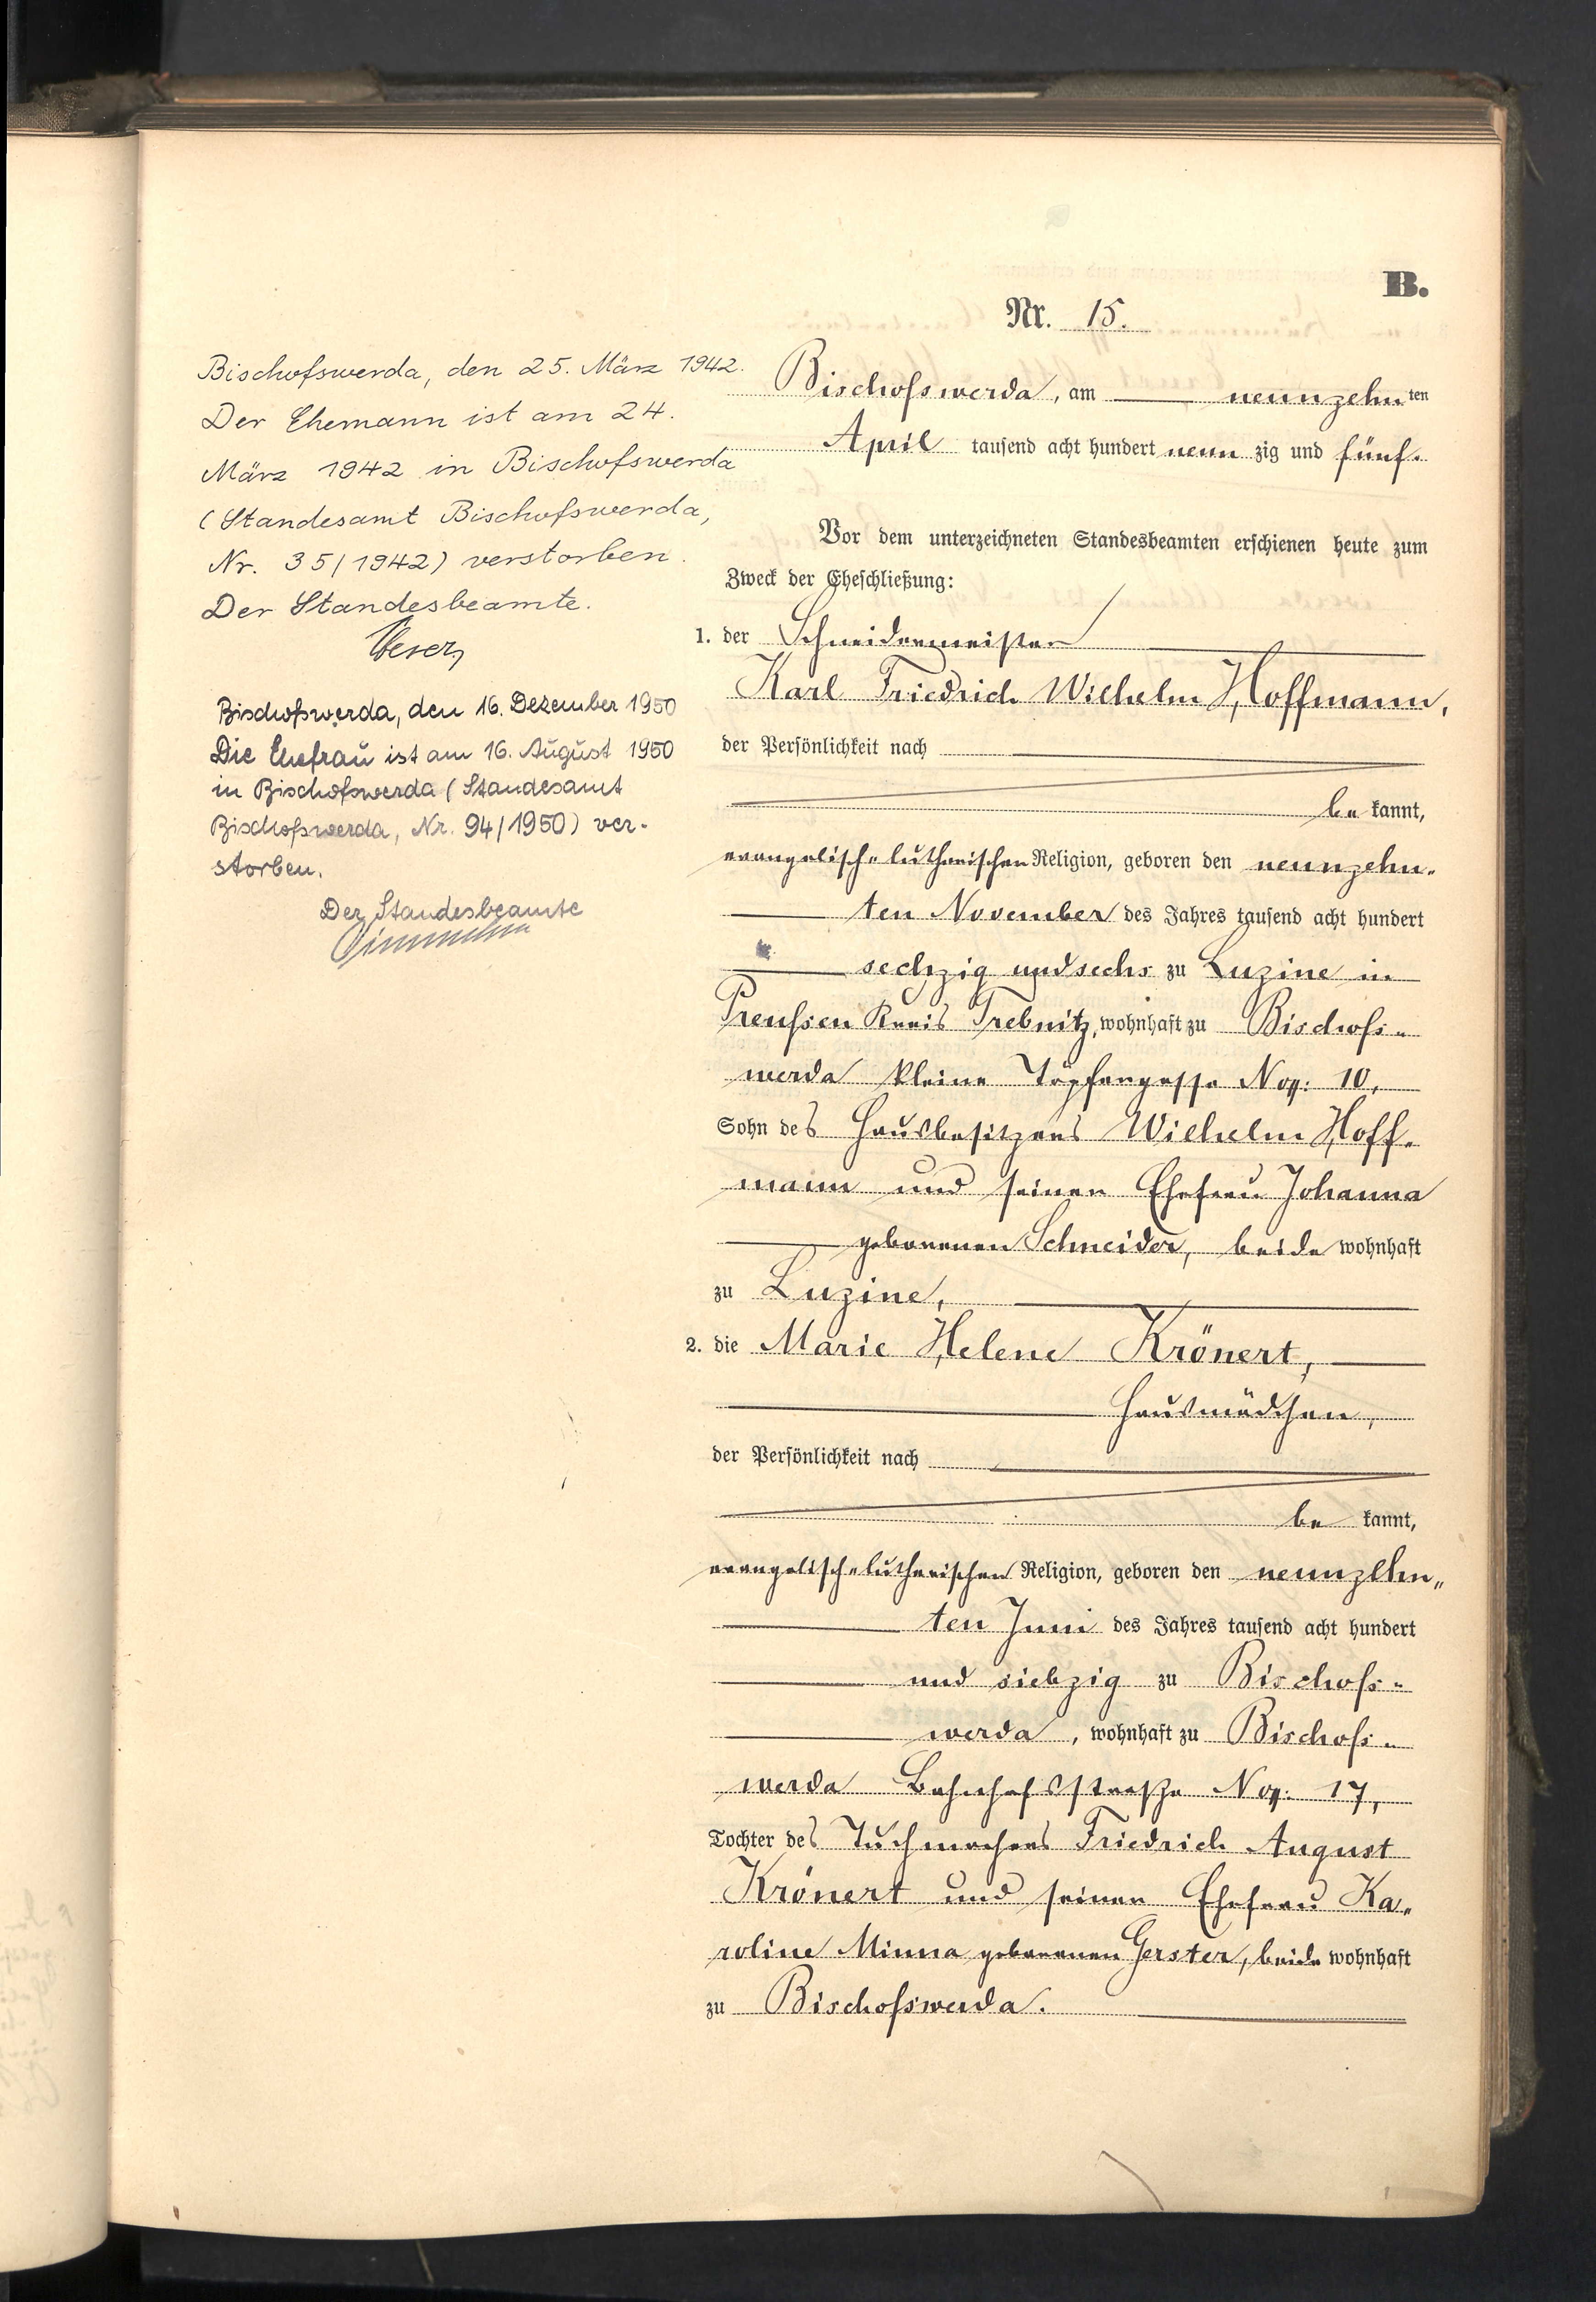 B.
Nr. 15.
Bischofswerda, am neunzehnten
April tausend acht hundert neunzig und fünf.
Vor dem unterzeichneten Standesbeamten erschienen heute zum
Zweck der Eheschließung:
1. der Schneidermeister
Karl Friedrich Wilhelm Hoffmann,
der Persönlichkeit nach
bekannt,
evangelisch-lutherischer Religion, geboren den neunzehn-
ten November des Jahres tausend acht hundert
sechzig und sechs zu Luzine in
Preußen Kreis Trebnitz, wohnhaft zu Bischofs-
werda kleine Töpfergasse No: 10,
Sohn des Hausbesitzers Wilhelm Hoff-
mann und seiner Ehefrau Johanna
geborenen Schneider, beide wohnhaft
zu Luzine,
2. die Marie Helene Krönert,
Hausmädchen,
der Persönlichkeit nach
bekannt,
evangelisch-lutherischen Religion, geboren den neunzehn-
ten Juni des Jahres tausend acht hundert
und siebzig zu Bischofs-
werda, wohnhaft zu Bischofs-
werda Bahnhofsstraße No: 17,
Tochter des Tuchmachers Friedrich August
Krönert und seiner Ehefrau Ka-
roline Minna geborenen Gerster, beide wohnhaft
zu Bischofswerda.
Bischofswerda, den 25. März 1942.
Der Ehemann ist am 24.
März 1942 in Bischofswerda
(Standesamt Bischofswerda,
Nr. 35/1942) verstorben.
Der Standesbeamte.
Bischofswerda, den 16. Dezember 1950
Die Ehefrau ist am 16. August 1950
in Bischofswerda (Standesamt
Bischofswerda, Nr. 94/1950) ver-
storben.
Der Standesbeamte